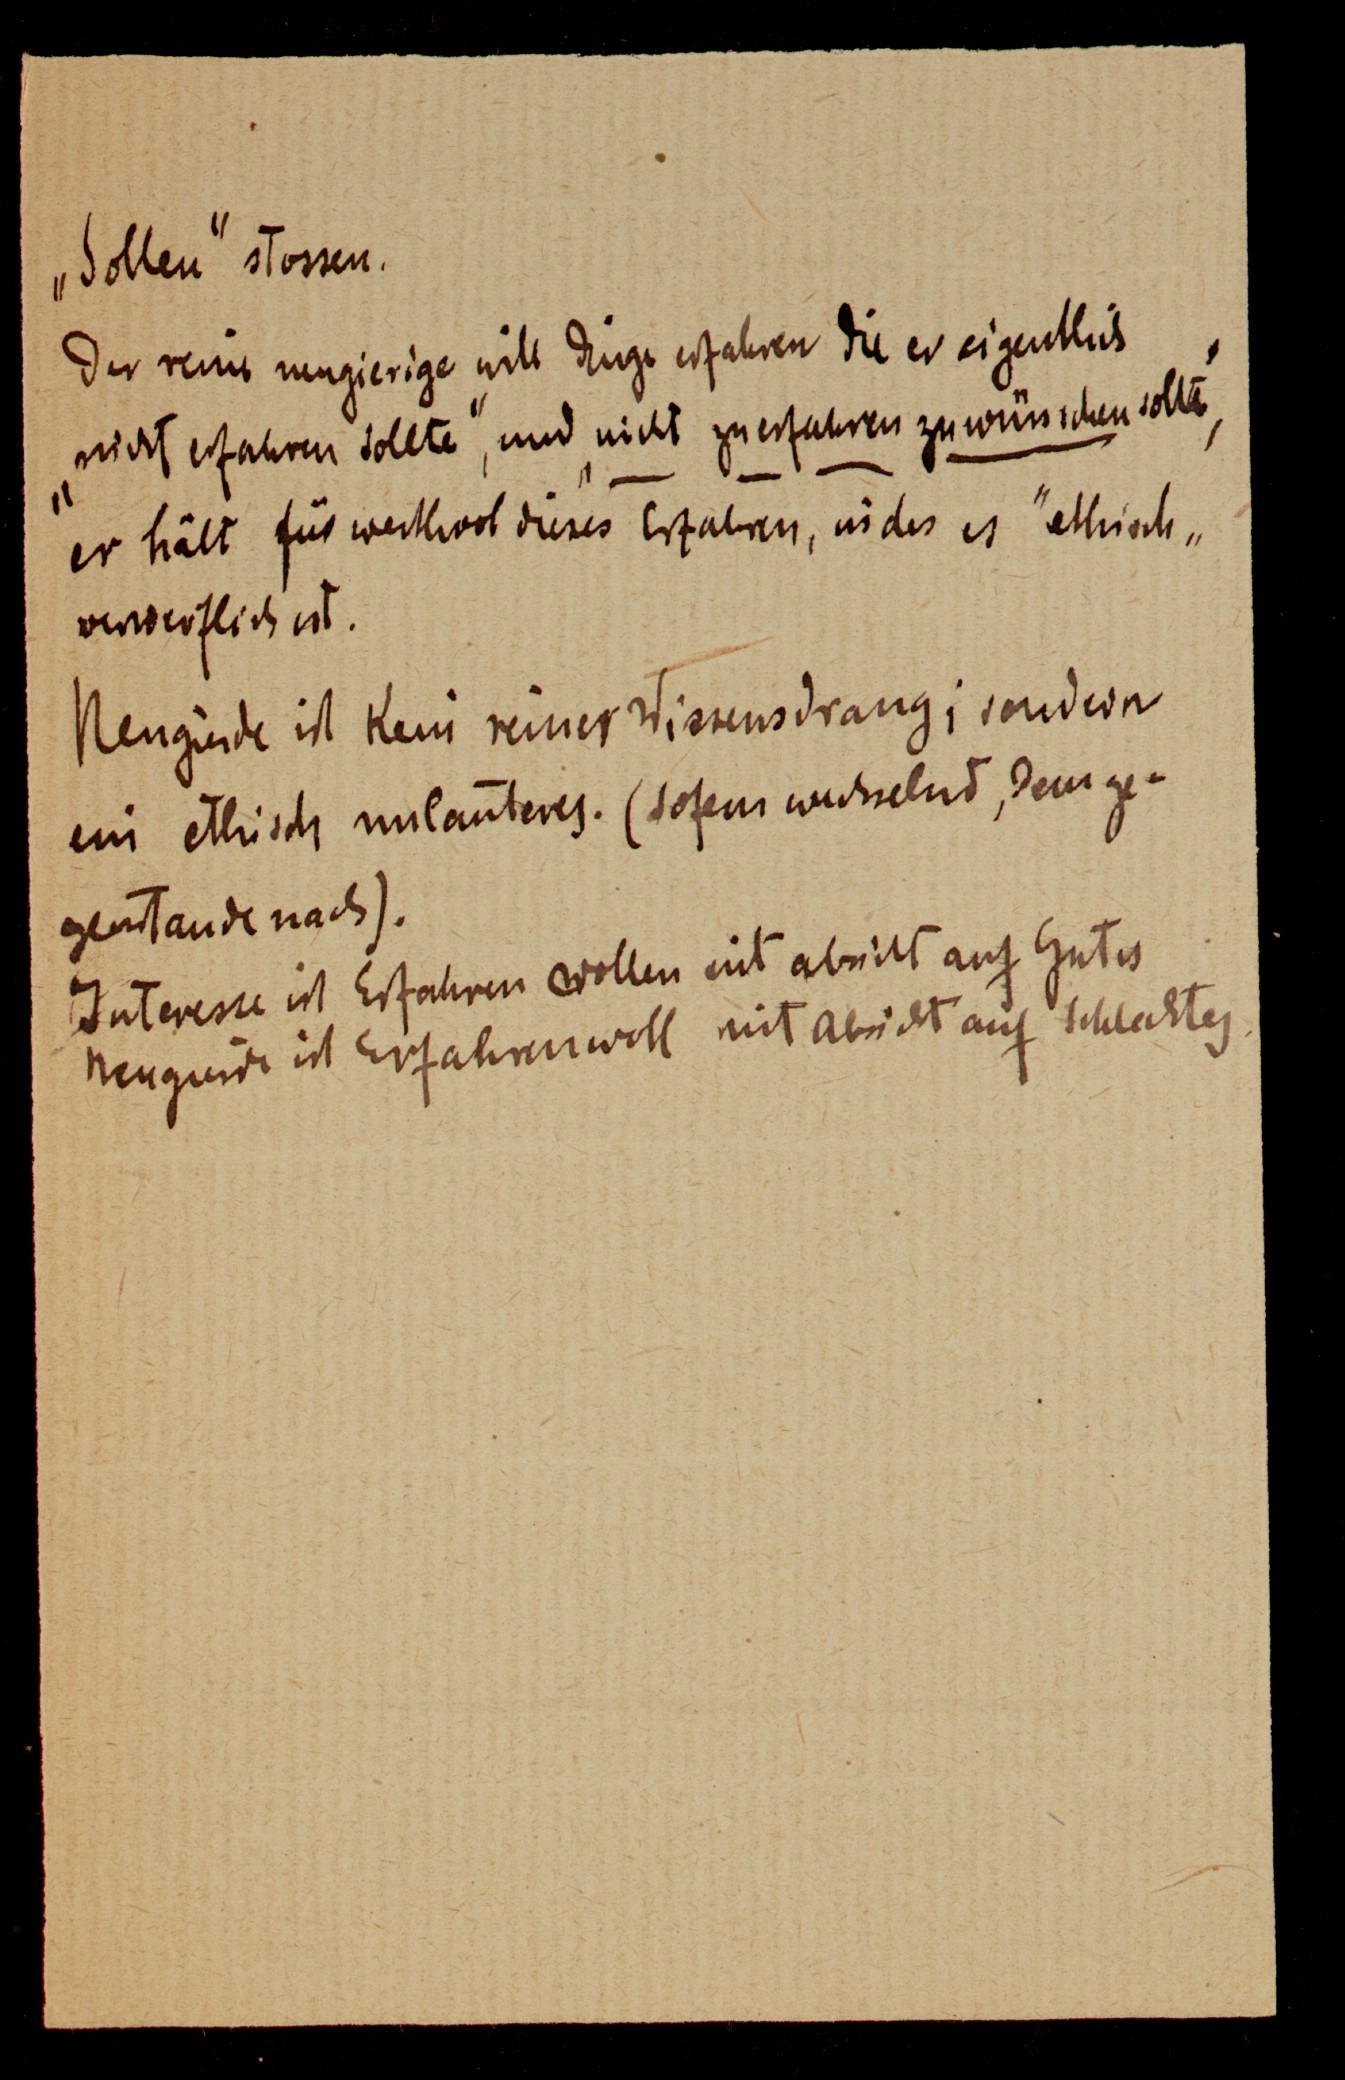 „Sollen" stossen.
Der reine neugierige will Dinge erfahren die er eigentlich
„nicht erfahren sollte", und „nicht zu erfahren zu wünschen sollte",
er hält für werthvol dieses Erfahren, indes es "ethisch„
verwerflich ist.
Neugierde ist kein reiner Wissensdrang; sondern
ein ethisch unlauteres. (sofern wechselnd, dem ge-
genstande nach).
Interesse ist Erfahren wollen mit absicht auf Gutes
Neugierde ist Erfahrenwoll mit Absicht auf schlechtes.